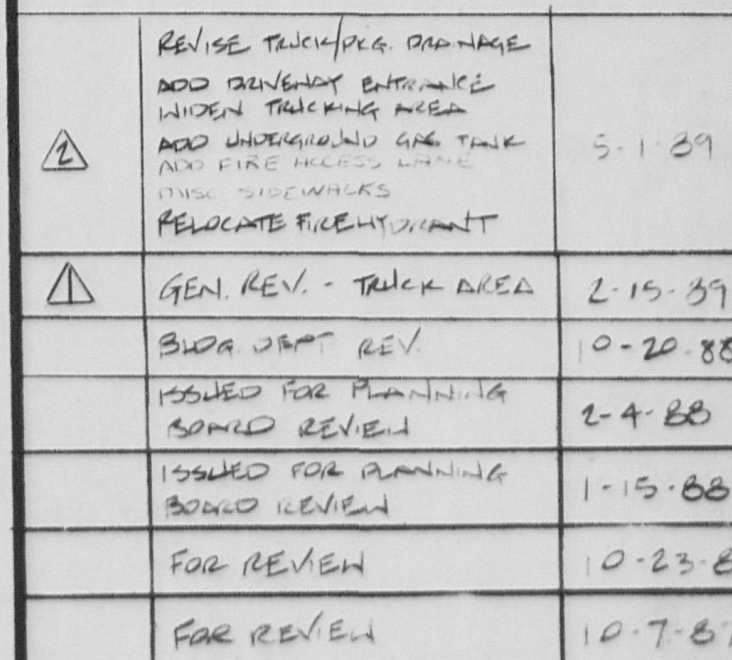 REVISE TRUCK/PKG. DRAINAGE
ADD DRIVEWAY ENTRANCE
WIDEN TRUCKING AREA
2 ADD UNDERGROUND GAS TANK 5-1-89
ADD FIRE ACCESS LANE
MISC SIDEWALKS
RELOCATE FIRE HYDRANT
1 GEN. REV. - TRUCK AREA 2-15-89
BLDG. DEPT REV. 10-20-88
ISSUED FOR PLANNING
BOARD REVIEW 2-4-88
ISSUED FOR PLANNING
BOARD REVIEW 1-15-88
FOR REVIEW 10-23-8
FOR REVIEW 10-7-87